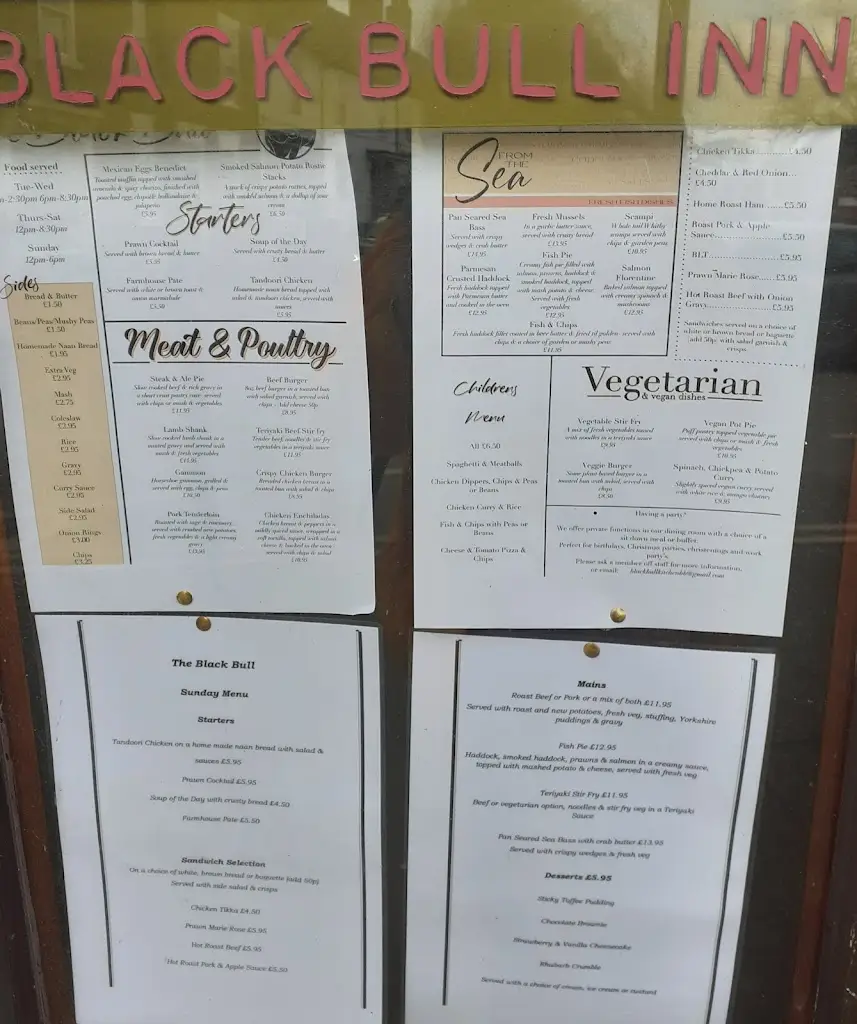 BLACK BULL INN
Food served
Tue-Wed
-2:30pm 6pm-8:30pm
Thurs-Sat
12pm-8:30pm
Sunday
12pm-6pm
Sides
Bread & Butter
£1.50
Beans/Peas/Mushy Peas
£1.50
Homemade Naan Bread
£1.95
Extra Veg
£2.95
Mash
£2.75
Coleslaw
£2.95
Rice
£2.95
Gravy
£2.95
Curry Sauce
£2.95
Side Salad
£2.95
Onion Rings
£3.00
Chips
£3.25
Mexican Eggs Benedict
Toasted muffin topped with smashed
avocado & spicy chorizo, finished with
poached egg, chipotle hollandaise &
jalapeño
£5.95
Smoked Salmon Potato Rosti
Stacks
A stack of crispy potato rosties, topped
with smoked salmon & a dollop of sour
cream
£6.50
Starters
Prawn Cocktail
Served with brown bread & butter
£5.95
Soup of the Day
Served with crusty bread & butter
£4.50
Farmhouse Pate
Served with white or brown toast &
onion marmalade
£5.50
Tandoori Chicken
Homemade naan bread topped with
salad & tandoori chicken, served with
sauces
£5.95
Meat & Poultry
Steak & Ale Pie
Slow cooked beef & rich gravy in
a short crust pastry case served
with chips or mash & vegetables
£11.95
Beef Burger
8oz beef burger in a toasted bun
with salad garnish, served with
chips - Add cheese 50p
£9.95
Lamb Shank
Slow cooked lamb shank in a
minted gravy and served with
mash & fresh vegetables
Teriyaki Beef Stir fry
Tender beef, noodles & stir fry
vegetables in a teriyaki sauce
£11.95
Gammon
Horseshoe gammon, grilled &
served with egg, chips & peas
£10.50
Crispy Chicken Burger
Breaded chicken breast in a
toasted bun with salad & chips
£9.95
Pork Tenderloin
Roasted with sage & rosemary,
served with crushed new potatoes,
fresh vegetables & a light creamy
gravy
£13.95
Chicken Enchiladas
Chicken breast & peppers in a
mildly spiced sauce, wrapped in a
soft tortilla, topped with salsa,
cheese & baked in the oven
served with chips & salad
£10.95
From the Sea
Pan Seared Sea
Bass
Served with crispy
wedges & crab butter
£13.95
Fresh Mussels
In a garlic butter sauce,
served with crusty bread
£13.95
Scampi
Whole tail Whitby
scampi served with
chips & garden peas
£10.95
Parmesan
Crusted Haddock
Fresh haddock topped
with Parmesan butter
and cooked in the oven
£12.95
Fish Pie
Creamy fish pie filled with
salmon, prawns, haddock &
smoked haddock, topped
with mash potato & cheese.
Served with fresh
vegetables
£12.95
Salmon
Florentine
Baked salmon topped
with creamy spinach &
mushrooms
£12.95
Fish & Chips
Fresh haddock fillet coated in beer batter & fried til golden- served with
chips & a choice of garden or mushy peas
£11.95
Chicken Tikka...........£4.50
Cheddar & Red Onion...
£4.50
Home Roast Ham.....£5.50
Roast Pork & Apple
Sauce....................£5.50
BLT........................£5.95
Prawn Marie Rose.....£5.95
Hot Roast Beef with Onion
Gravy.....................£5.95
Sandwiches served on a choice of
white or brown bread or baguette
add 50p with salad garnish &
crisps
Childrens
Menu
All £6.50
Spaghetti & Meatballs
Chicken Dippers, Chips & Peas
or Beans
Chicken Curry & Rice
Fish & Chips with Peas or
Beans
Cheese & Tomato Pizza &
Chips
Vegetarian
& vegan dishes
Vegetable Stir Fry
A mix of fresh vegetables tossed
with noodles in a teriyaki sauce
£9.95
Vegan Pot Pie
Puff pastry topped vegetable pie
served with chips or mash & fresh
vegetables
£10.95
Veggie Burger
Some plant based burger in a
toasted bun with salad, served with
chips
£9.50
Spinach, Chickpea & Potato
Curry
Slightly spiced vegan curry served
with white rice & mango chutney
£9.95
Having a party?
We offer private functions in our dining room with a choice of a
sit down meal or buffet.
Perfect for birthdays, Christmas parties, christenings and work
party's.
Please ask a member off staff for more information,
or email:
The Black Bull
Sunday Menu
Starters
Tandoori Chicken on a home made naan bread with salad &
sauces £5.95
Prawn Cocktail £5.95
Soup of the Day with crusty bread £4.50
Farmhouse Pate £5.50
Sandwich Selection
On a choice of white, brown bread or baguette (add 50p)
Served with side salad & crisps
Chicken Tikka £4.50
Prawn Marie Rose £5.95
Hot Roast Beef £5.95
Hot Roast Pork & Apple Sauce £5.50
Mains
Roast Beef or Pork or a mix of both £11.95
Served with roast and new potatoes, fresh veg, stuffing, Yorkshire
puddings & gravy
Fish Pie £12.95
Haddock, smoked haddock, prawns & salmon in a creamy sauce,
topped with mashed potato & cheese, served with fresh veg
Teriyaki Stir Fry £11.95
Beef or vegetarian option, noodles & stir fry veg in a Teriyaki
Sauce
Pan Seared Sea Bass with crab butter £13.95
Served with crispy wedges & fresh veg
Desserts £5.95
Sticky Toffee Pudding
Chocolate Brownie
Strawberry & Vanilla Cheesecake
Rhubarb Crumble
Served with a choice of cream, ice cream or custard